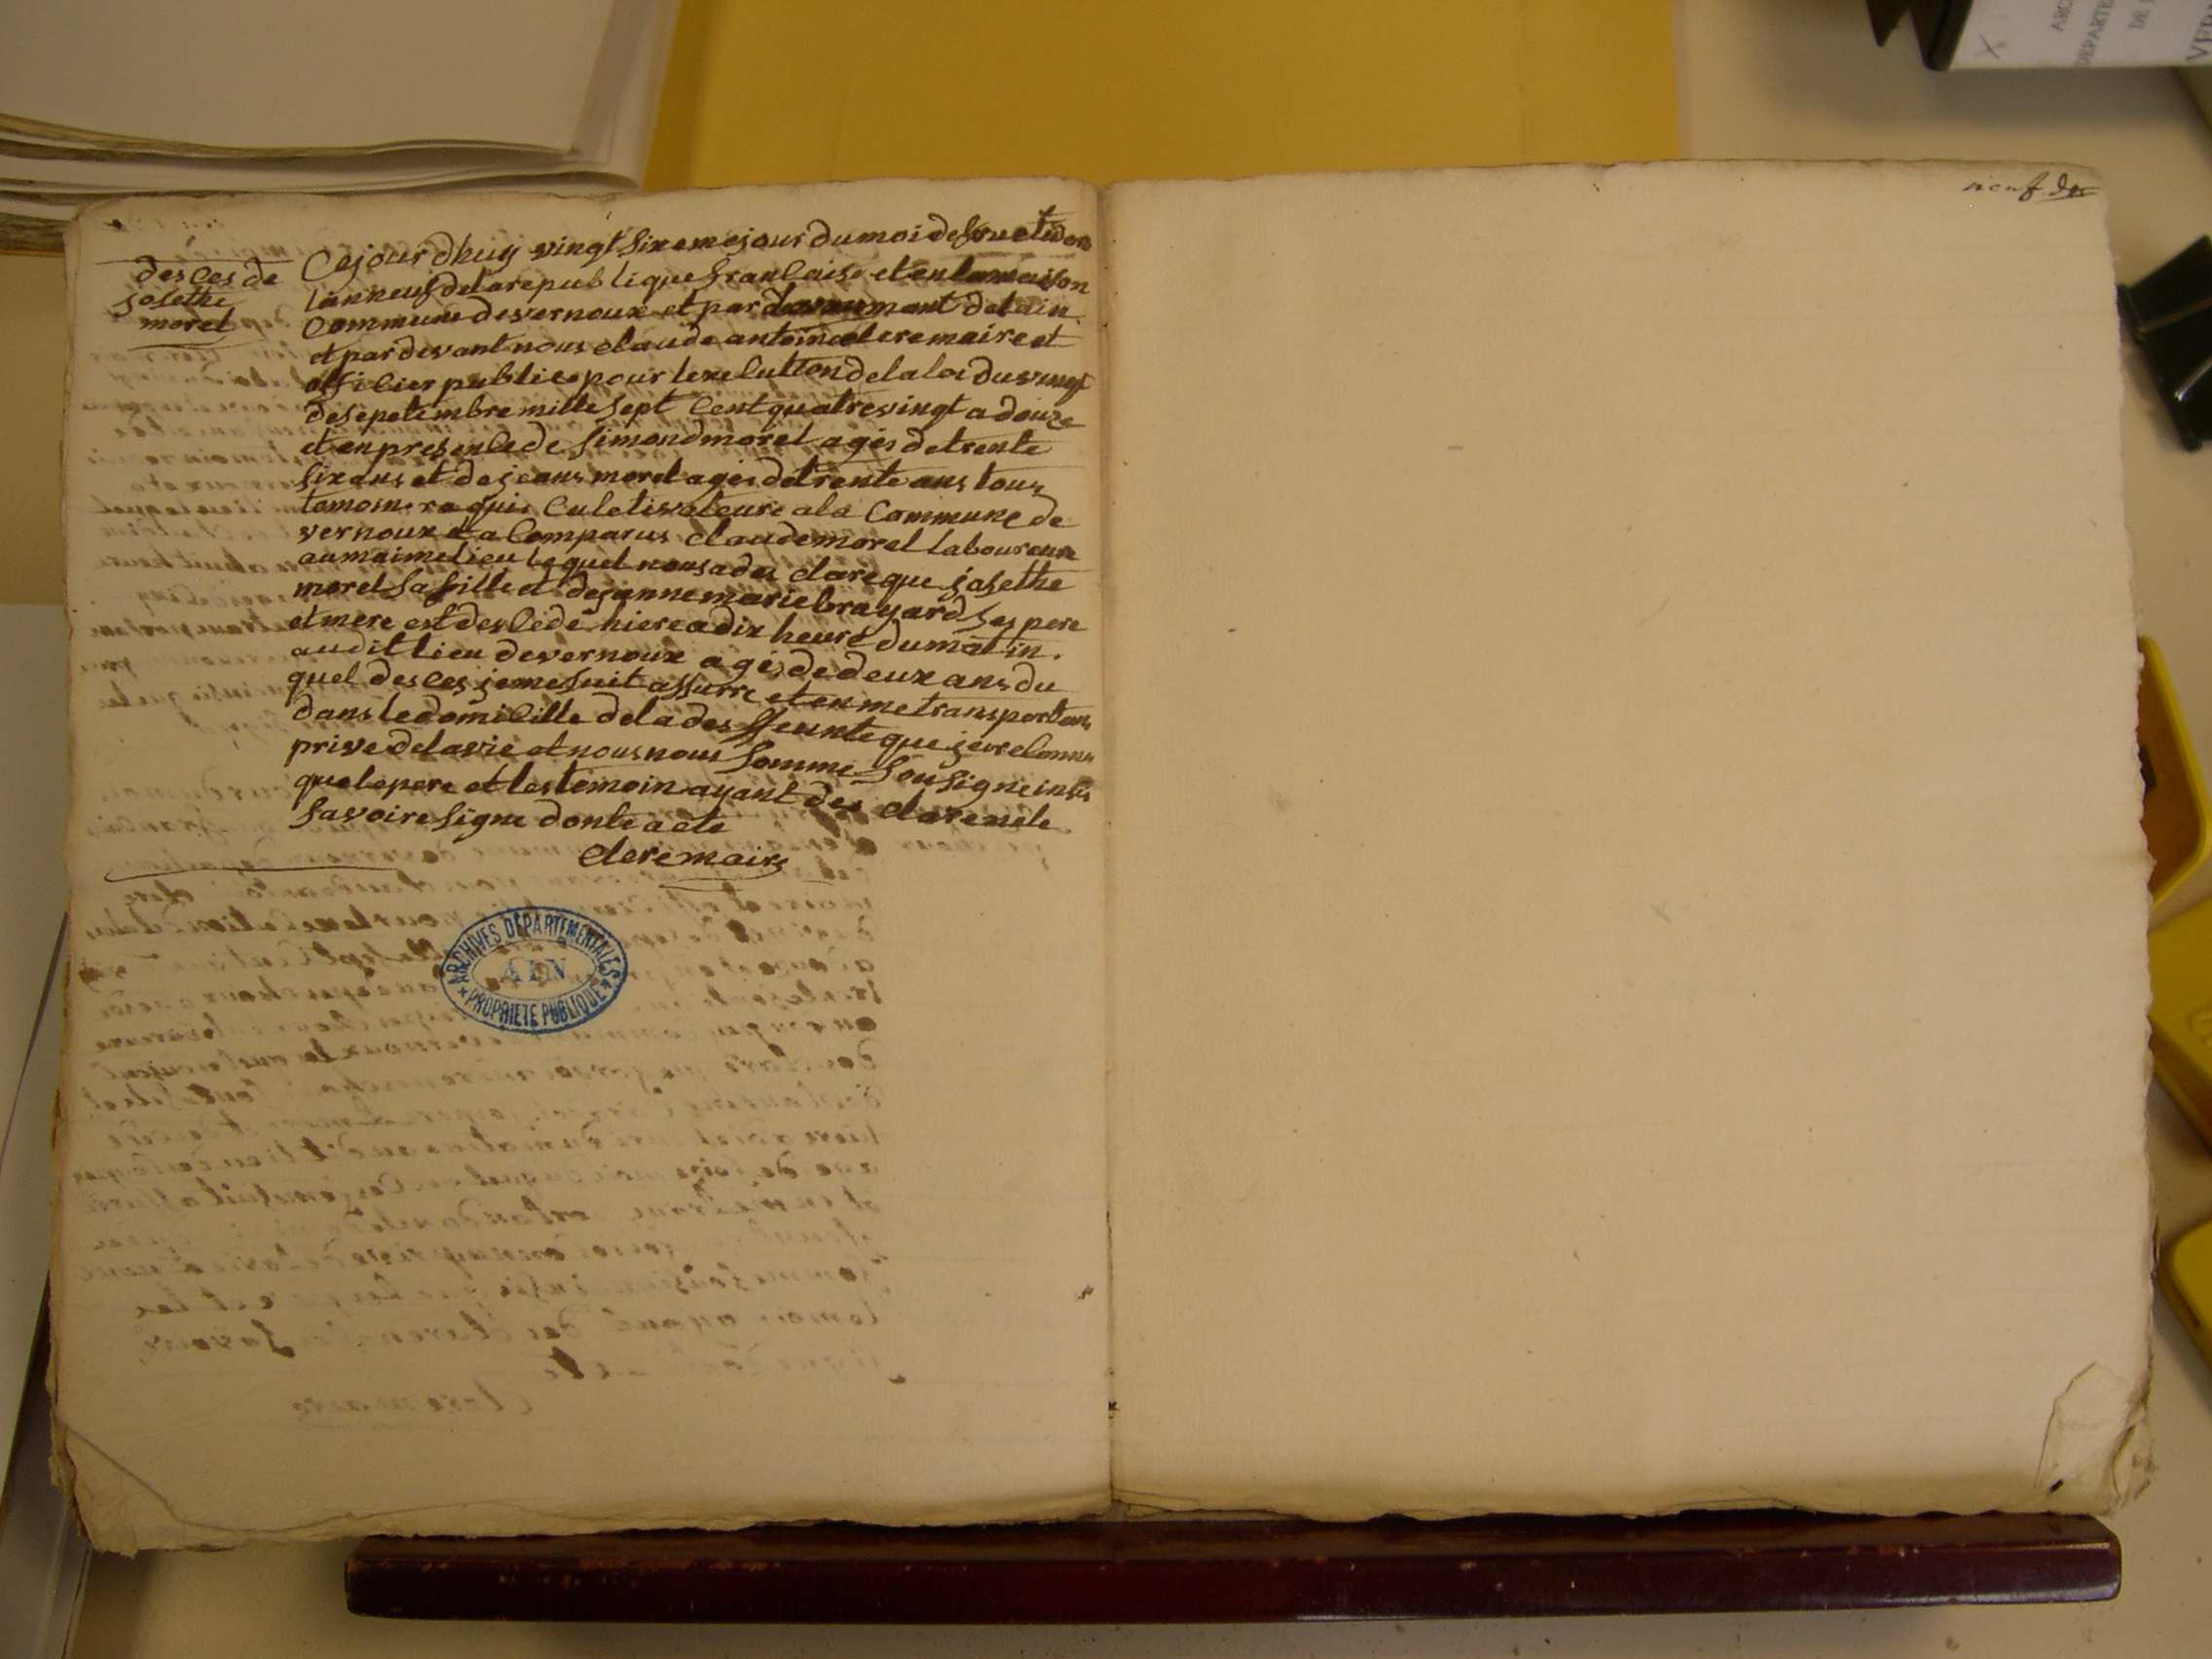 desces de
josethe
morel
Cejourdhuy vingt sixemejour dumoi de fructidor
lanneuf delarepublique francaise et en lamaison
commune devernoux et par de lain
et pardevant nous claude antoine clere maire et
officier publice pour lexecuttion delaloi du vingt
desepetembre mille sept cent quatrevingt a douze
et en presencede simond morel agés detrente
six ans et dejeans morel agés detrente ans tous
temoins requis culetivateure ala Commune de
vernoux et a Comparus claude morel laboureure
aumaimelieu lequel nous a des clare que josethe
morel sa fille et dejanne marie brayard ses pere
et mere est descede hiere a dix heure du matin.
audit lieu devernoux agés de deux ans du
quel desces jeme suit assurre et en me transportans
dans le domicille dela desffeunte que jeureconnu
prive delavie et nous nous somme sousigne insis
quelepere et les temoin ayant des clarenete
savoire signe donte acte
clere maire
ARCHIVES DÉPARTEMENTALES
AIN
PROPRIÉTÉ PUBLIQUE
neuf